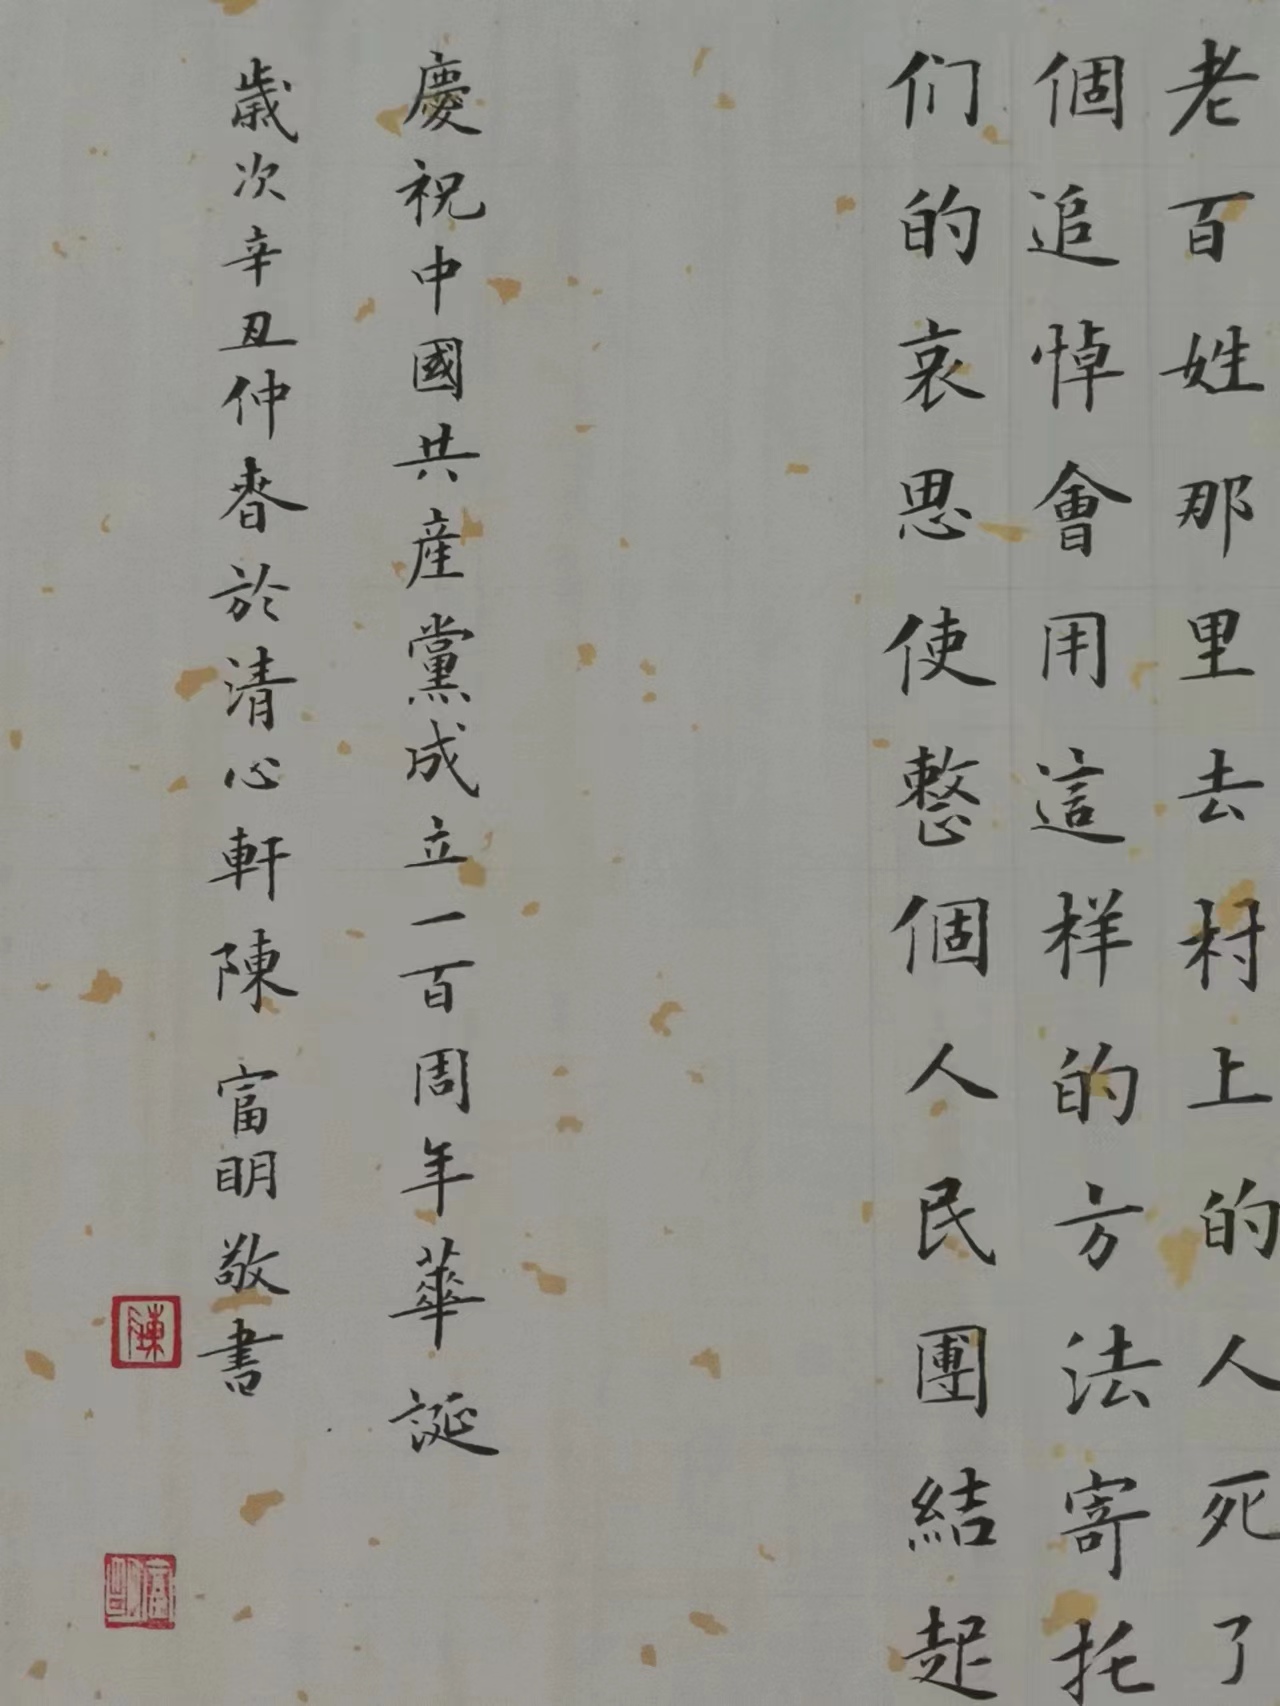 老百姓那里去村上的人死了
個追悼會用這样的方法寄托
们的哀思使整個人民團結起
慶祝中國共産黨成立一百周年華誕
歲次辛丑仲春於清心軒陳富明敬書
陳
富明